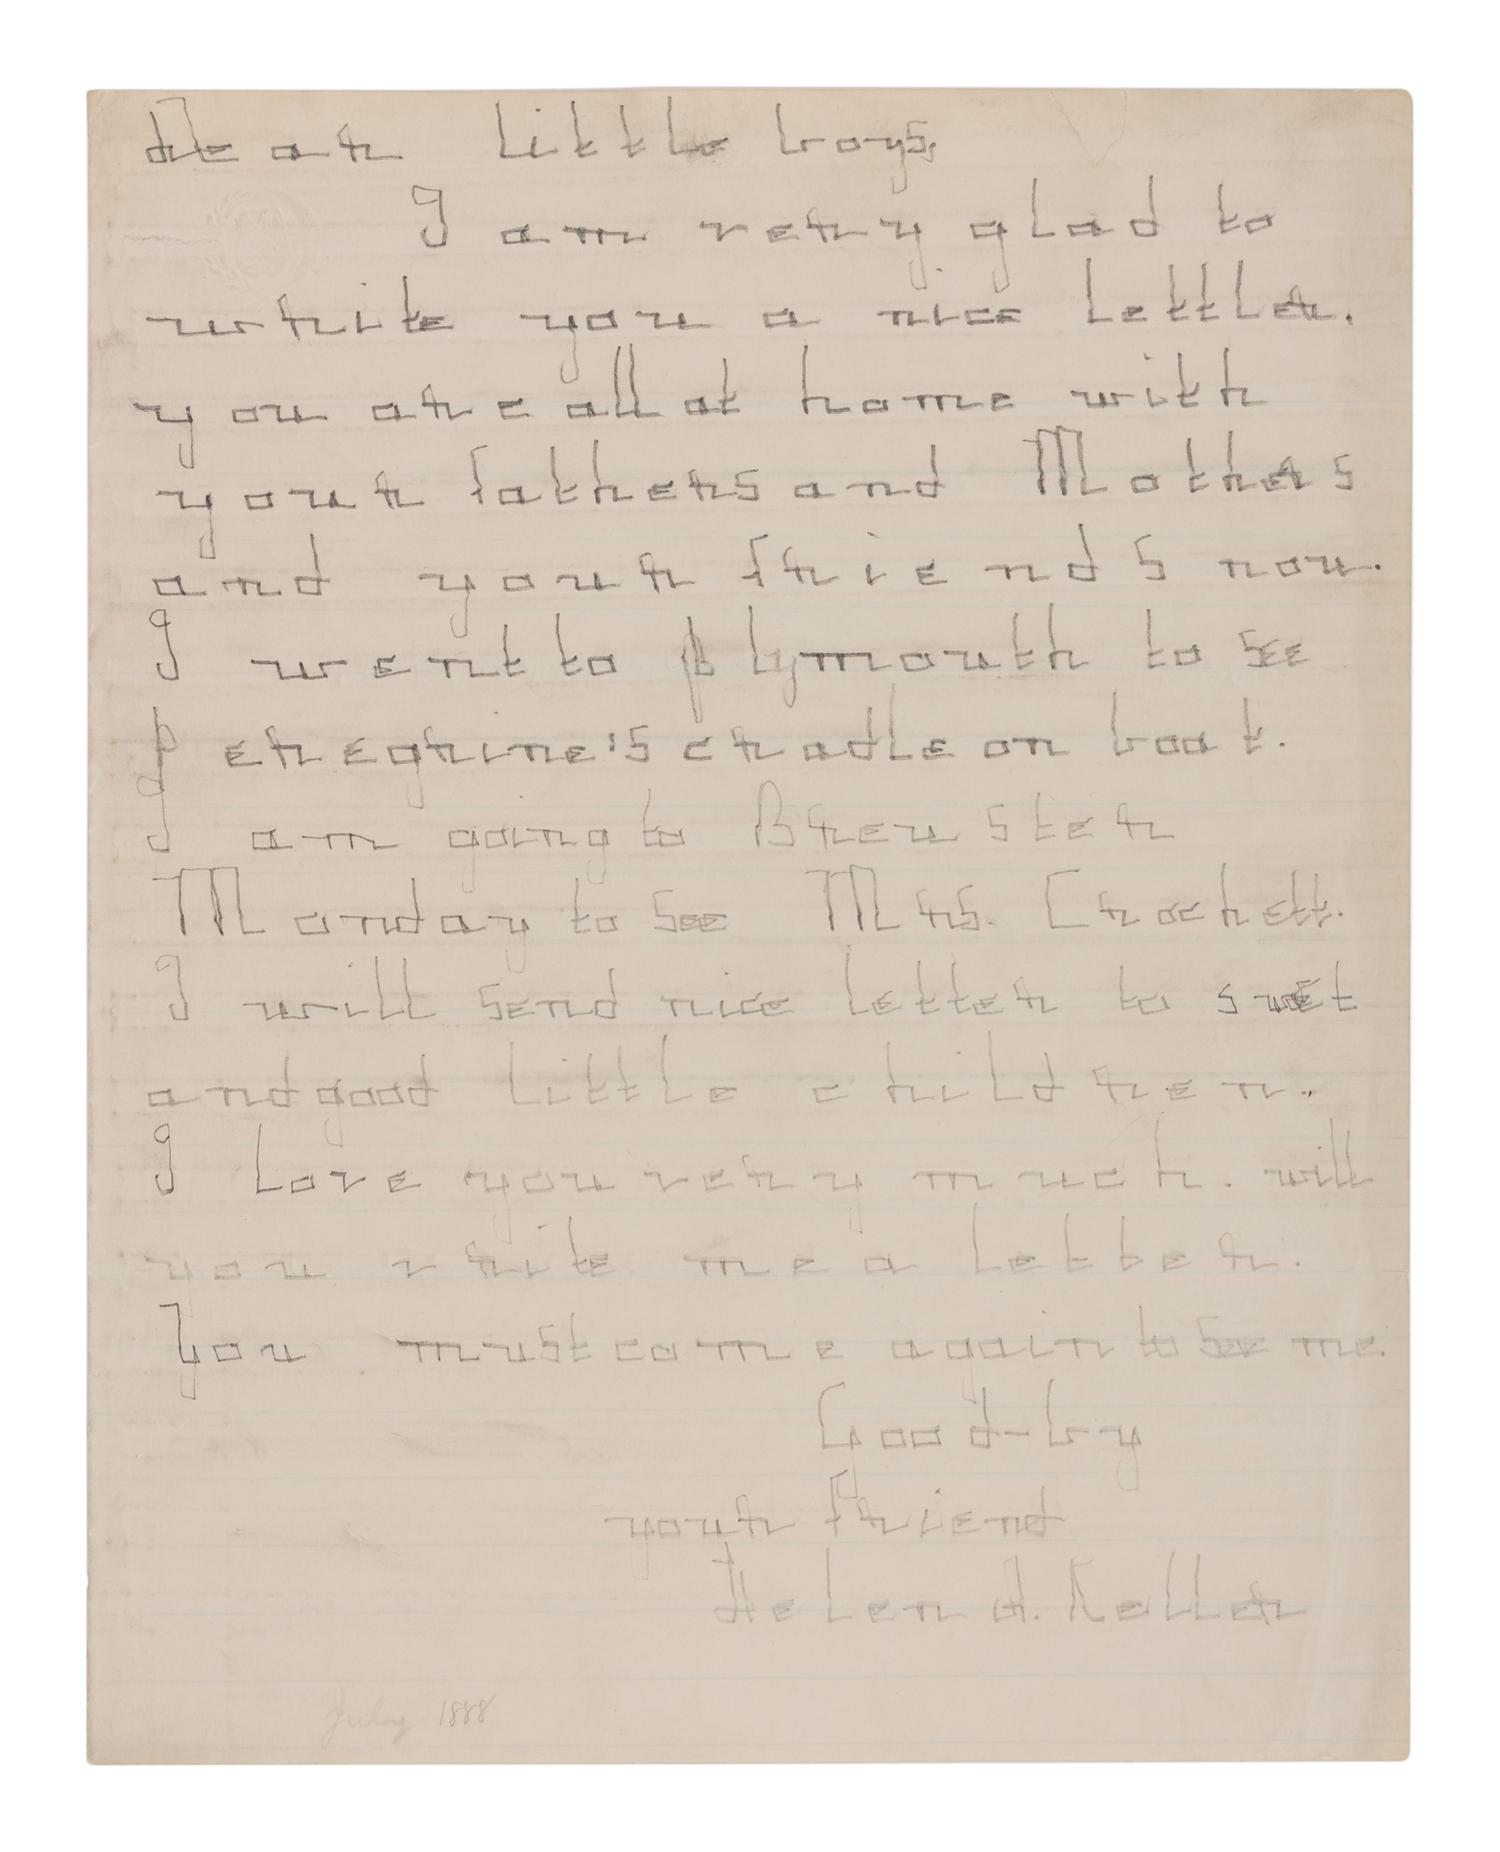 Dear little boys,
I am very glad to
write you a nice lettle.
you are all at home with
your fathers and Mothers
and your friends now.
I went to plymouth to see
peregrine's cradle on boat.
I am going to Brewster
Monday to see Mrs. Crockett.
I will send nice letter to swet
and good little children.
I love you very much. will
you write me a letter.
You must come again to see me.
Good-by
your friend
Helen A. Keller
July 1888